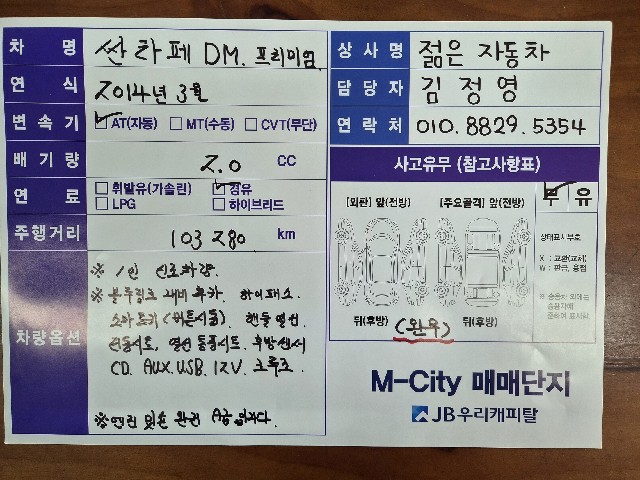 차 명 싼타페 DM. 프리미엄
연 식 2014년 3월
변 속 기 AT(자동) MT(수동) CVT(무단)
배 기 량 2.0 CC
연 료 휘발유(가솔린) 경유
LPG 하이브리드
주행거리 103280 km
차량옵션
※ 1인 신조차량.
※ 블루링크 내비 후카. 하이패스
스마트키 (버튼시동). 핸들열선
전동시트. 열선 통풍시트. 후방센서
CD. AUX. USB. 12V.
※ 엔진 밋숀 완전 A급 입니다.
상 사 명 젊은 자동차
담 당 자 김 정 영
연 락 처 010. 8829. 5354
사고유무 (참고사항표)
무 유
[외판] 앞(전방) [주요골격] 앞(전방)
상태표시부호
X : 교환(교체)
W : 판금, 용접
※ 승용차 외에는
승용차에
준하여 표시함
뒤(후방) (완무) 뒤(후방)
M-City 매매단지
JB우리캐피탈